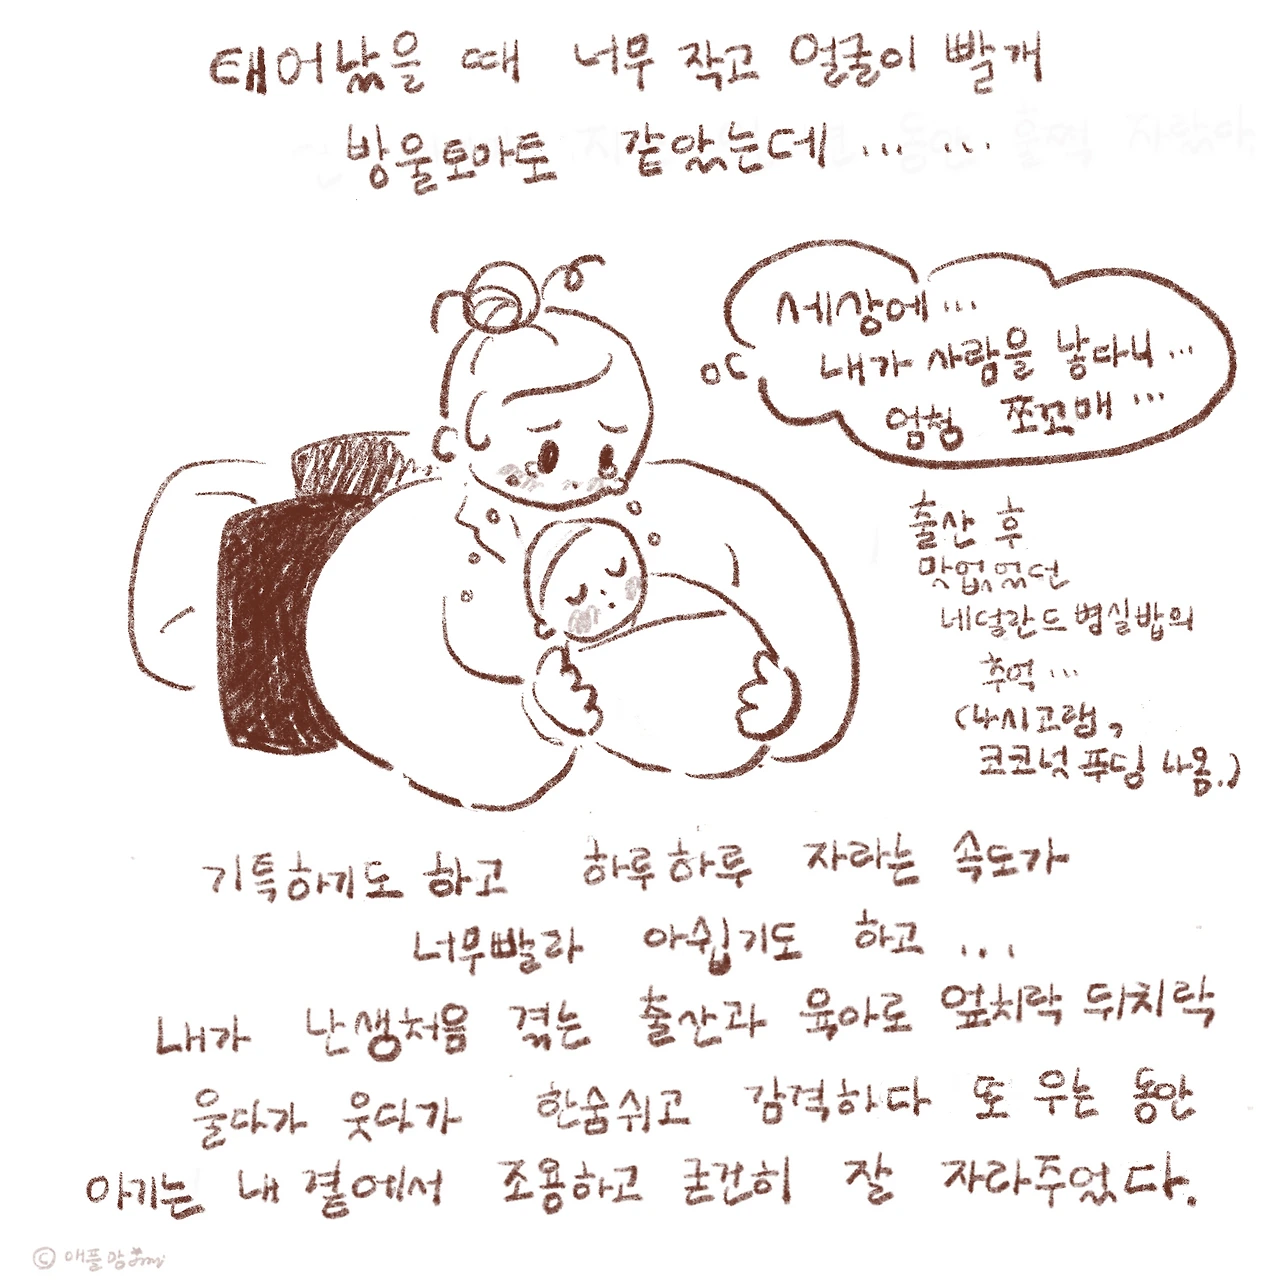 태어났을 때 너무 작고 얼굴이 빨개
방울토마토 같았는데... ...
세상에...
내가 사람을 낳다니...
엄청 쪼꼬매...
출산 후
맛없었던
네덜란드 병실밥의
추억...
(나시고랭,
코코넛 푸딩 나옴.)
기특하기도 하고 하루하루 자라는 속도가
너무빨라 아쉽기도 하고...
내가 난생처음 겪는 출산과 육아로 엎치락 뒤치락
울다가 웃다가 한숨쉬고 감격하다 또 우는 동안
아기는 내 곁에서 조용하고 굳건히 잘 자라주었다.
© 애플망